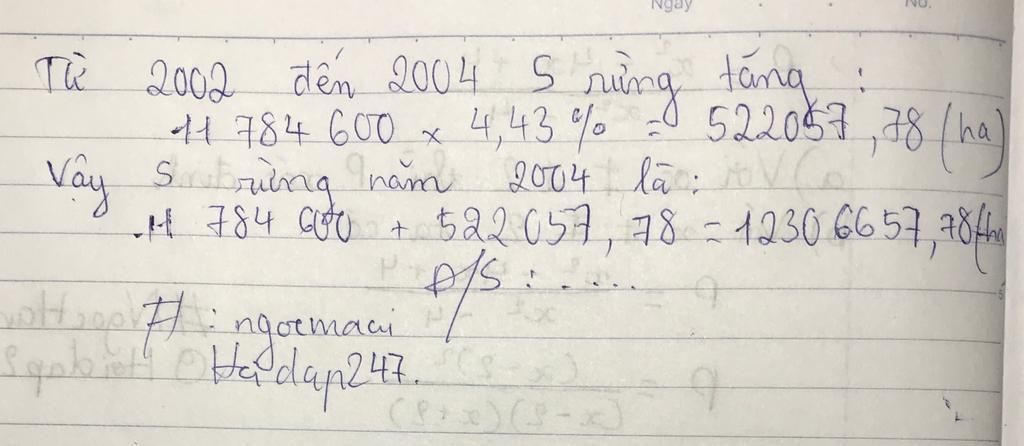 Ngày
No.
Từ 2002 đến 2004 S rừng tăng :
11 784 600 x 4,43 % = 522057,78 (ha)
Vậy S rừng năm 2004 là:
11 784 600 + 522057,78 = 12306657,78 (ha
Đ/S : ....
#: ngocmaiHỏi
dap247.